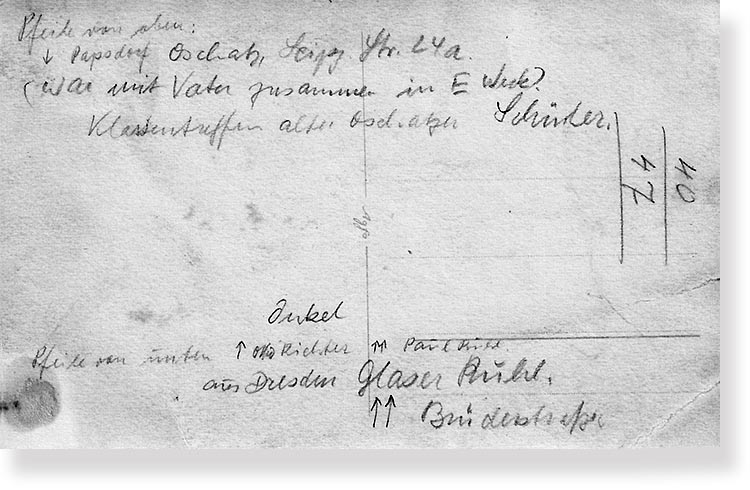 Pfeile von oben:
↓ Papsdorf Oschatz, Leipz Str. 24a.
(war mit Vater zusammen in E Werk).
Klassentreffen alter Oschatzer Schüler.
40
47
Onkel
Pfeile von unten ↑ Otto Richter ↑↑ Paul Kuhl
aus Dresden Glaser Kuhl.
↑↑ Brüderstraße